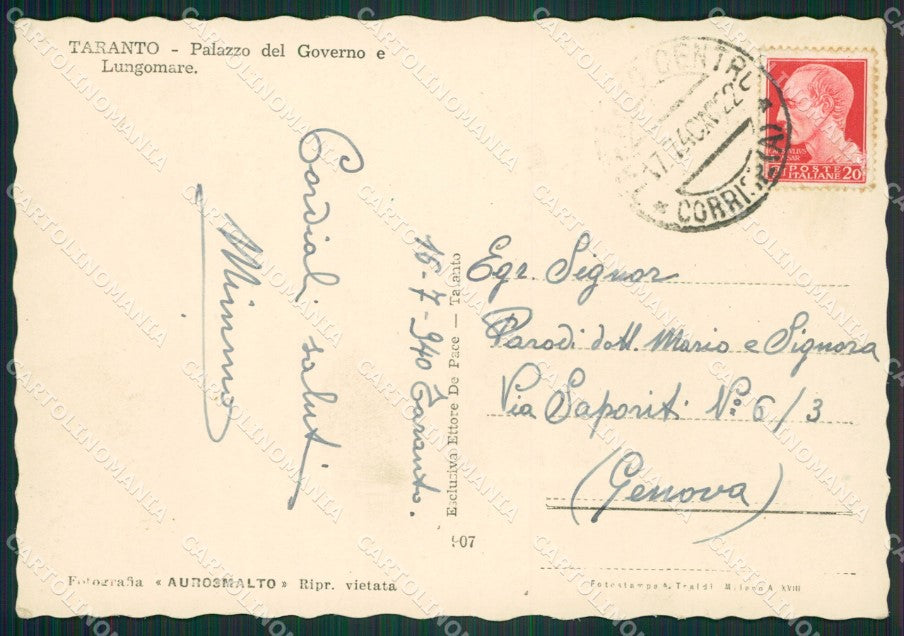 TARANTO - Palazzo del Governo e
Lungomare.
Cordiali saluti
Mimmo
16-7-940 Taranto.
Esclusiva Ettore De Pace — Taranto
907
Fotografia « AUROSMALTO » Ripr. vietata
CENTRO
17.7.40 XVIII 22
CORRISP.
POSTE
ITALIANE 20
Egr. Signor
Parodi dott. Mario e Signora
Via Saporiti N.º 6/3
(Genova)
Fotostampa A. Traldi Milano A. XVIII
CARTOLINOMANIA